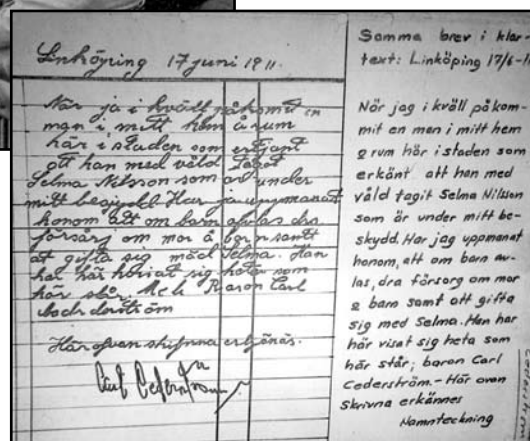 Linköping 17 juni 1911.
När ja i kväll påkomit en
man i mitt hem å rum
här i staden som erkjänt
att han med våld tagit
Selma Nilsson som är under
mitt beskydd. Har ja uppmanat
honom att om barn avlas dra
försörj om mor å barn samt
at gifta sig mäd Selma. Han
har här
här står. Baron Carl
Här ofvan skrifvna erkjänäs.
Carl Cederström
Samma brev i klar-
text: Linköping 17/6-11
När jag i kväll påkom-
mit en man i mitt hem
o rum här i staden som
erkänt att han med
våld tagit Selma Nilsson
som är under mitt be-
skydd. Har jag uppmanat
honom, att om barn av-
las, dra försorg om mor
o barn samt att gifta
sig med Selma. Han har
här visat sig heta som
här står; baron Carl
Cederström. - Här ovan
skrivna erkännes
Namnteckning